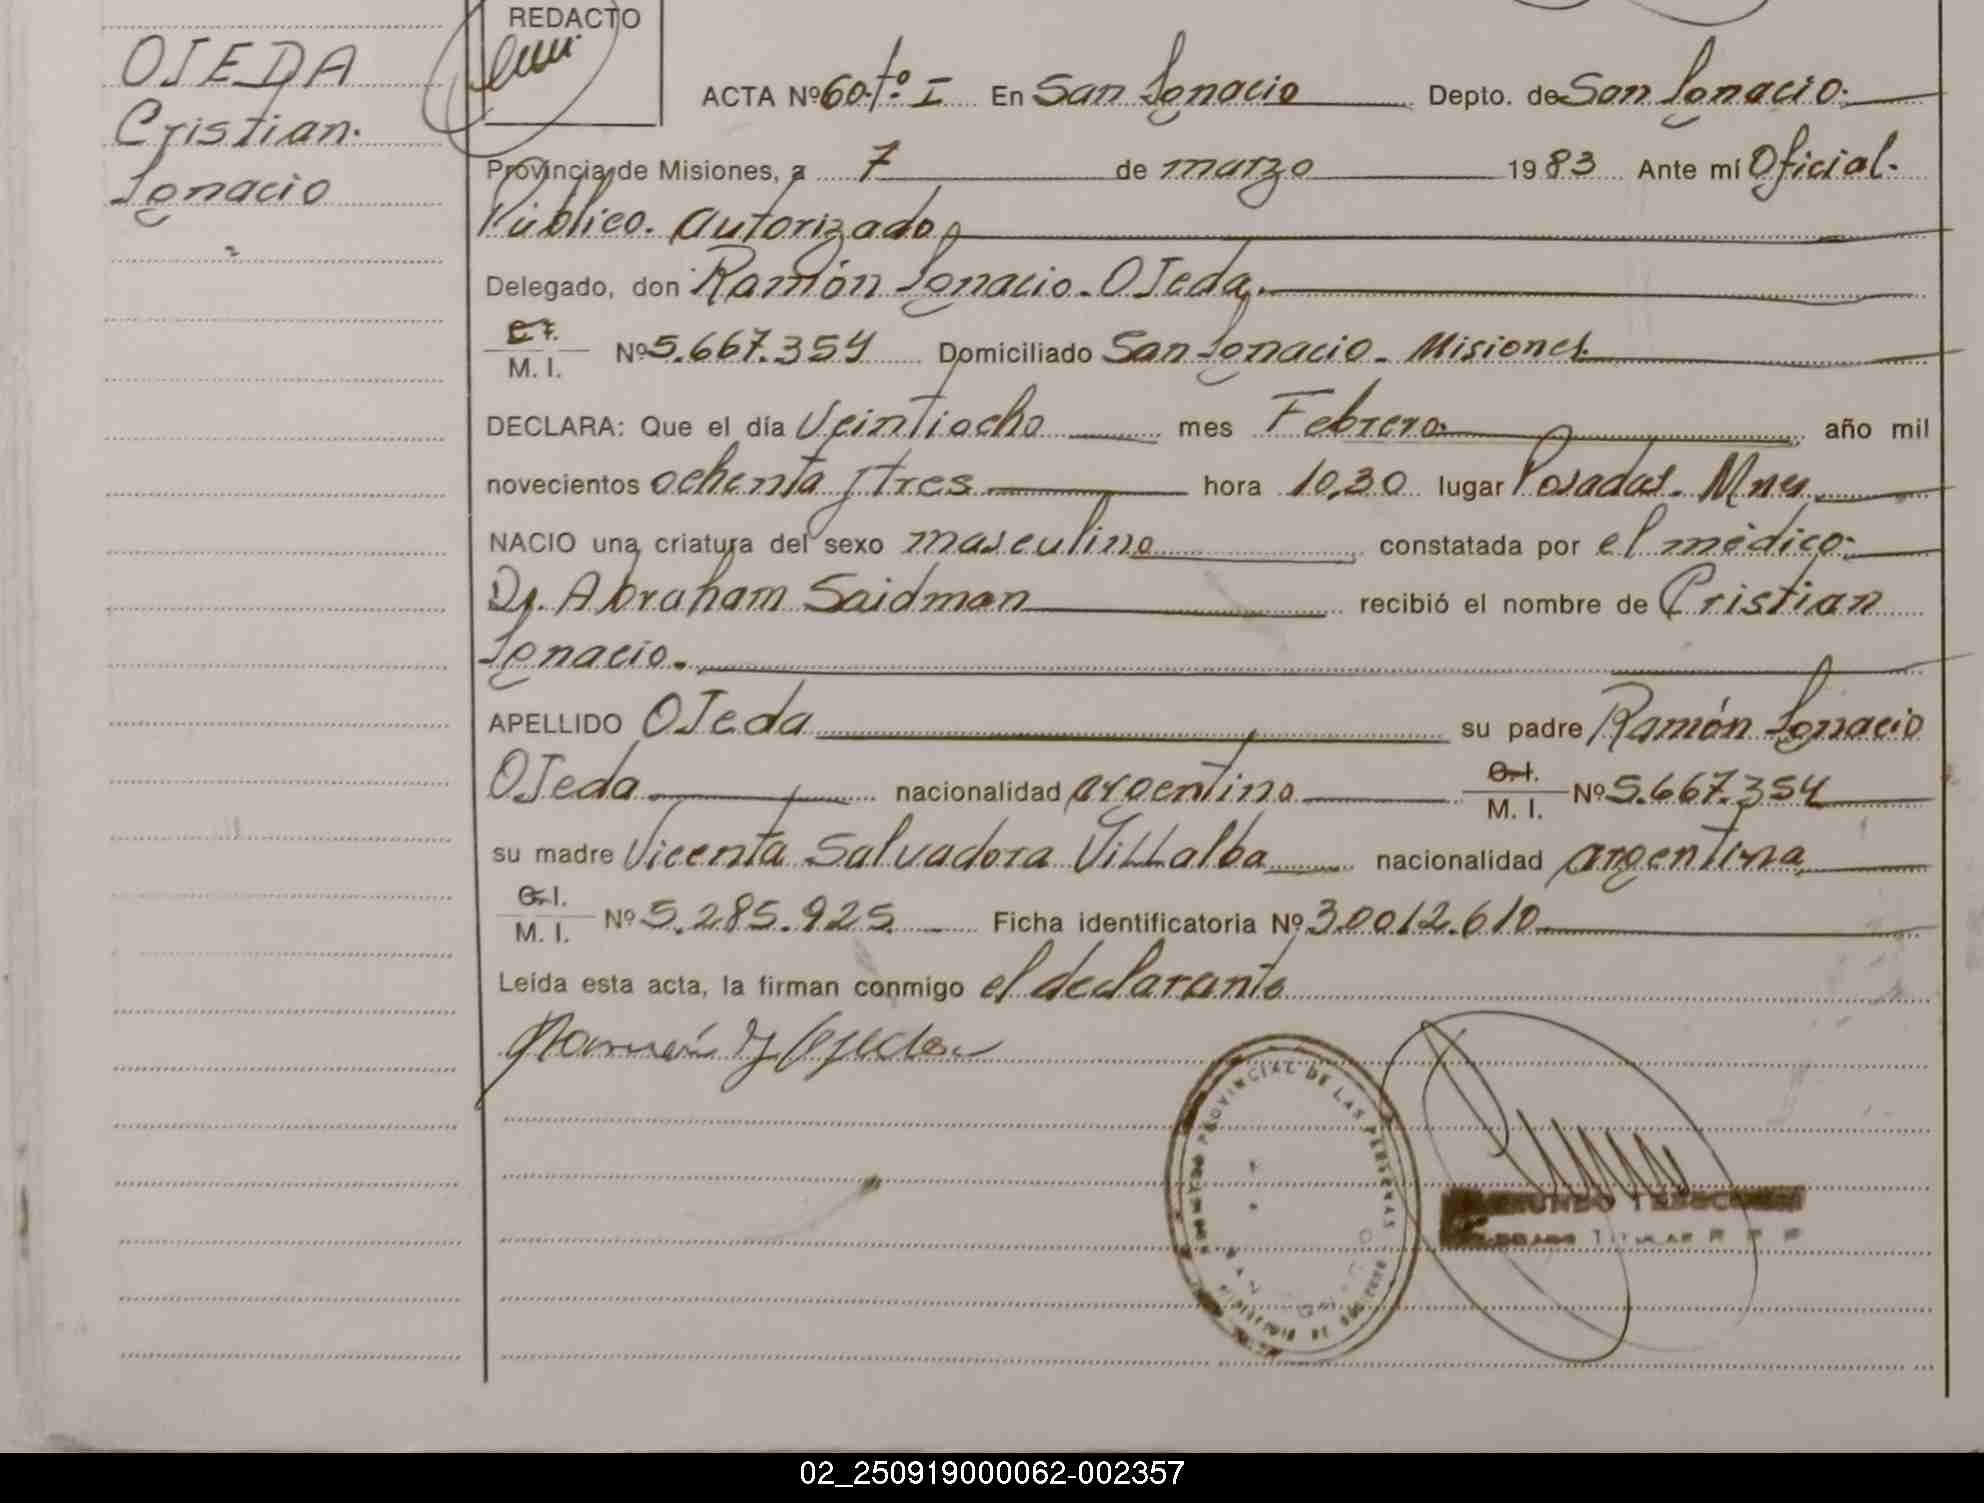 OJEDA
Cristian.
Ignacio
REDACTO
ACTA Nº 60-tº I En San Ignacio Depto. de San Ignacio.
Provincia de Misiones, a 7 de marzo 1983 Ante mí Oficial.
Público. autorizado
Delegado, don Ramón Ignacio. OJeda.
C.I.
M. I. Nº 5.667.354 Domiciliado San Ignacio. Misiones.
DECLARA: Que el día Veintiocho mes Febrero. año mil
novecientos ochenta y tres hora 10,30 lugar Posadas. Mnes.
NACIO una criatura del sexo masculino constatada por el médico.
Dr. Abraham Saidman recibió el nombre de Cristian
Ignacio.
APELLIDO OJeda su padre Ramón Ignacio
OJeda nacionalidad argentino C.I.
M. I. Nº 5.667.354
su madre Vicenta Salvadora Villalba nacionalidad argentina
C.I.
M. I. Nº 5.285.925 Ficha identificatoria Nº 30012.610
Leída esta acta, la firman conmigo el declarante
Ramón I Ojeda
PROVINCIAL DE LAS PERSONAS
TITULAR
02_250919000062-002357